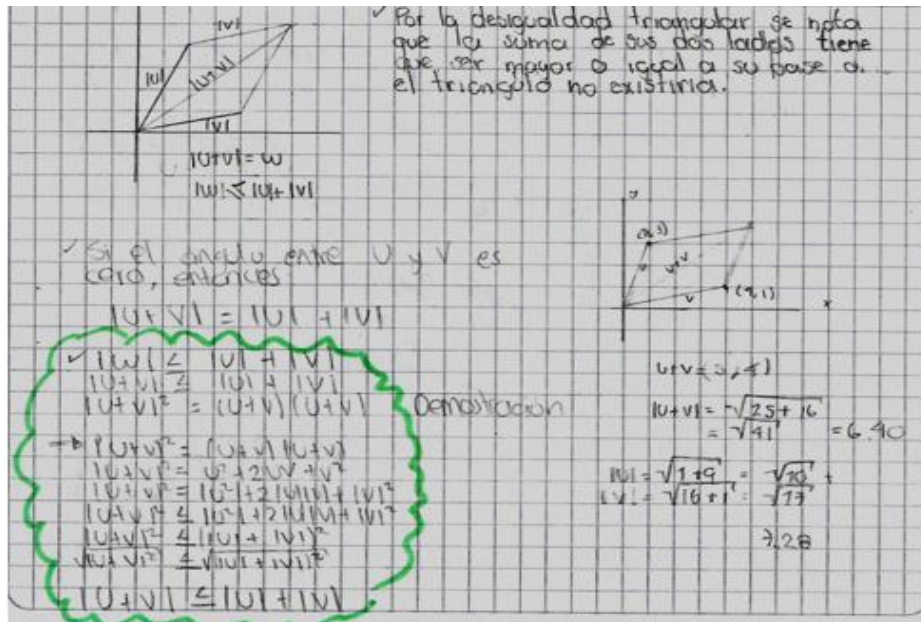 |V|
|U|
|U+V|
|V|
|U+V| = w
|w| ≤ |U| + |V|
✓ Por la desigualdad triangular se nota
que la suma de sus dos lados tiene
que ser mayor o igual a su base o
el triangulo no existiria.
✓ Si el angulo entre U y V es
cero, entonces
|U+V| = |U| + |V|
✓ |w| ≤ |U| + |V|
|U+V| ≤ |U| + |V|
|U+V|² = (U+V)(U+V)
Demostracion
→ |U+V|² = (U+V)(U+V)
|U+V|² = U²+2UV+V²
|U+V|² = |U²|+2|U||V|+|V|²
|U+V|² ≤ |U²|+2|U||V|+|V|²
|U+V|² ≤ (|U|+|V|)²
√|U+V|² ≤ √(|U|+|V|)²
|U+V| ≤ |U|+|V|
y
U
U+V
V
(4,1)
x
|U+V| = √25+16
= √41 = 6.40
|U| = √1+9 = √10 +
|V| = √16+1 = √17
7.28